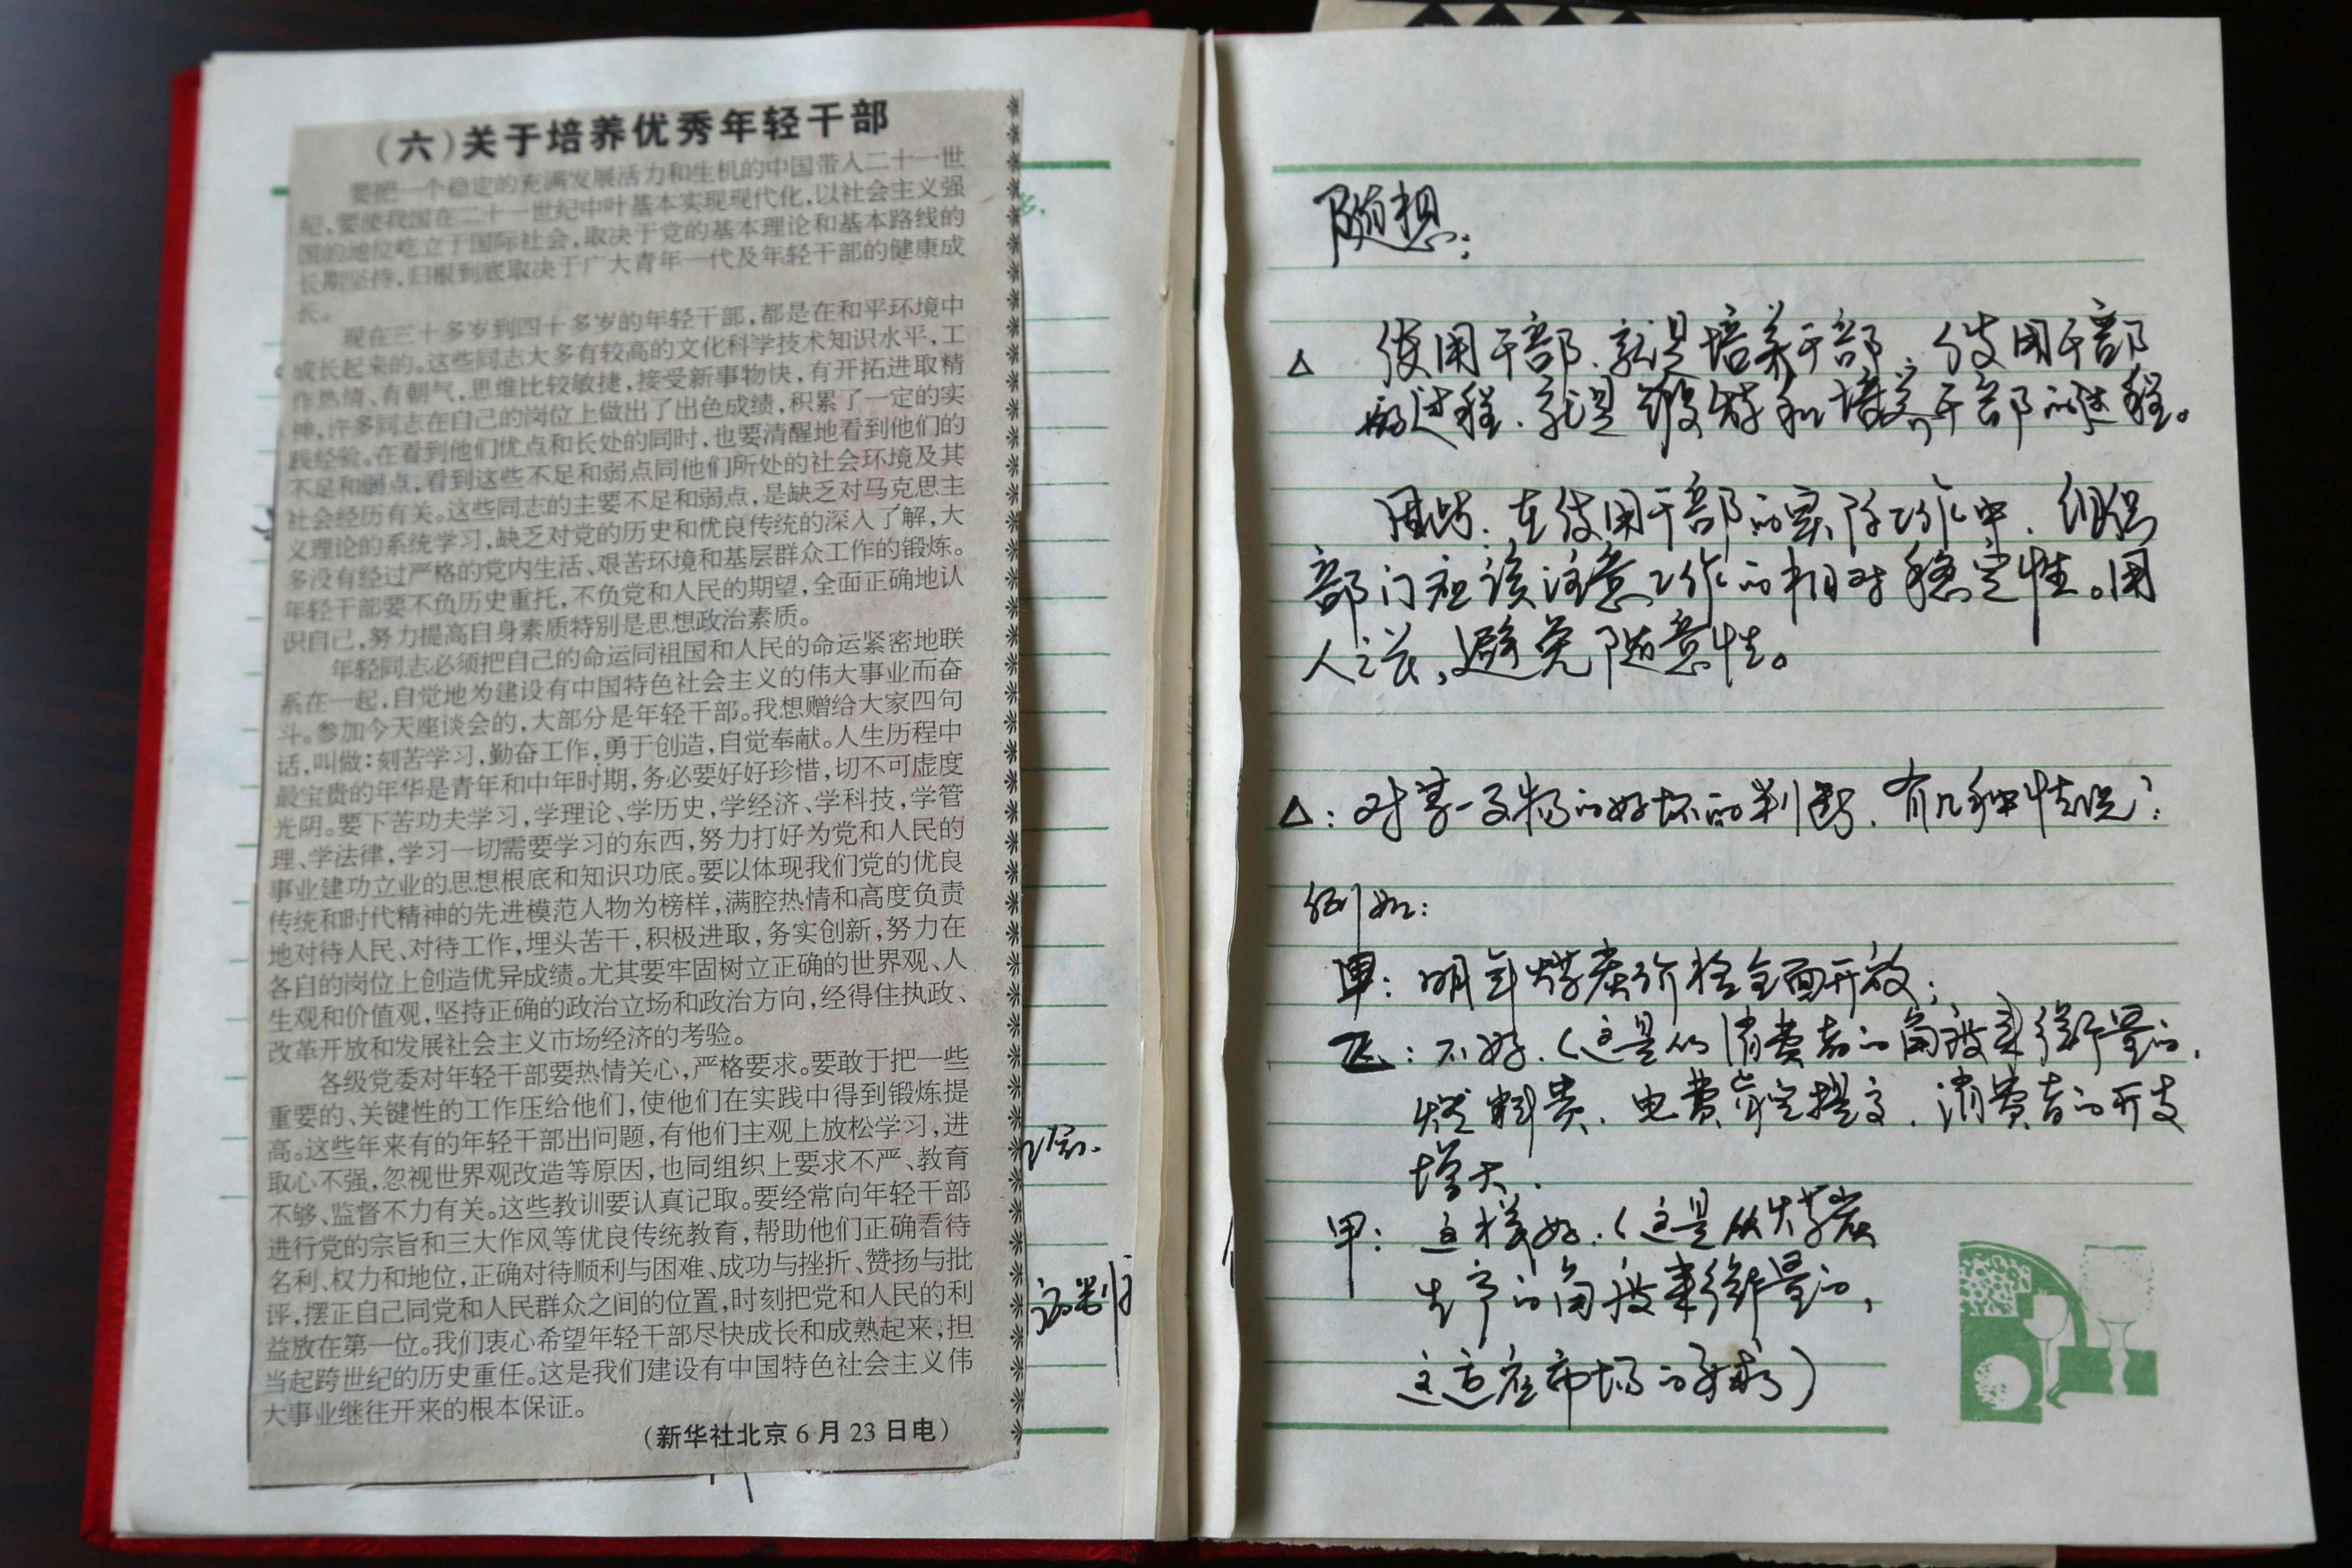 (六)关于培养优秀年轻干部
要把一个稳定的充满发展活力和生机的中国带入二十一世
纪,要使我国在二十一世纪中叶基本实现现代化,以社会主义强
国的地位屹立于国际社会,取决于党的基本理论和基本路线的
长期坚持,归根到底取决于广大青年一代及年轻干部的健康成
长。
现在三十多岁到四十多岁的年轻干部,都是在和平环境中
成长起来的。这些同志大多有较高的文化科学技术知识水平,工
作热情、有朝气,思维比较敏捷,接受新事物快,有开拓进取精
神,许多同志在自己的岗位上做出了出色成绩,积累了一定的实
践经验。在看到他们优点和长处的同时,也要清醒地看到他们的
不足和弱点,看到这些不足和弱点同他们所处的社会环境及其
社会经历有关。这些同志的主要不足和弱点,是缺乏对马克思主
义理论的系统学习,缺乏对党的历史和优良传统的深入了解,大
多没有经过严格的党内生活、艰苦环境和基层群众工作的锻炼。
年轻干部要不负历史重托,不负党和人民的期望,全面正确地认
识自己,努力提高自身素质特别是思想政治素质。
年轻同志必须把自己的命运同祖国和人民的命运紧密地联
系在一起,自觉地为建设有中国特色社会主义的伟大事业而奋
斗。参加今天座谈会的,大部分是年轻干部。我想赠给大家四句
话,叫做:刻苦学习,勤奋工作,勇于创造,自觉奉献。人生历程中
最宝贵的年华是青年和中年时期,务必要好好珍惜,切不可虚度
光阴。要下苦功夫学习,学理论、学历史,学经济、学科技,学管
理、学法律,学习一切需要学习的东西,努力打好为党和人民的
事业建功立业的思想根底和知识功底。要以体现我们党的优良
传统和时代精神的先进模范人物为榜样,满腔热情和高度负责
地对待人民、对待工作,埋头苦干,积极进取,务实创新,努力在
各自的岗位上创造优异成绩。尤其要牢固树立正确的世界观、人
生观和价值观,坚持正确的政治立场和政治方向,经得住执政、
改革开放和发展社会主义市场经济的考验。
各级党委对年轻干部要热情关心,严格要求。要敢于把一些
重要的、关键性的工作压给他们,使他们在实践中得到锻炼提
高。这些年来有的年轻干部出问题,有他们主观上放松学习,进
取心不强,忽视世界观改造等原因,也同组织上要求不严、教育
不够、监督不力有关。这些教训要认真记取。要经常向年轻干部
进行党的宗旨和三大作风等优良传统教育,帮助他们正确看待
名利、权力和地位,正确对待顺利与困难、成功与挫折、赞扬与批
评,摆正自己同党和人民群众之间的位置,时刻把党和人民的利
益放在第一位。我们衷心希望年轻干部尽快成长和成熟起来,担
当起跨世纪的历史重任。这是我们建设有中国特色社会主义伟
大事业继往开来的根本保证。
(新华社北京6月23日电)
随想:
△ 使用干部、就是培养干部,使用干部
的过程、就是锻炼和培养干部的过程。
因此、在使用干部的实际工作中、组织
部门应该注意工作的相对稳定性。用
人之长,避免随意性。
△:对某一事物的好坏的判断、有几种情况:
例如:
甲:明年煤炭价格全面开放;
乙:不好、(这是从消费者的角度来衡量的,
燃料费、电费肯定提高、消费者的开支
增大、
甲:这样好、(这是从煤炭
生产的角度来衡量的,
这适应市场的需求)